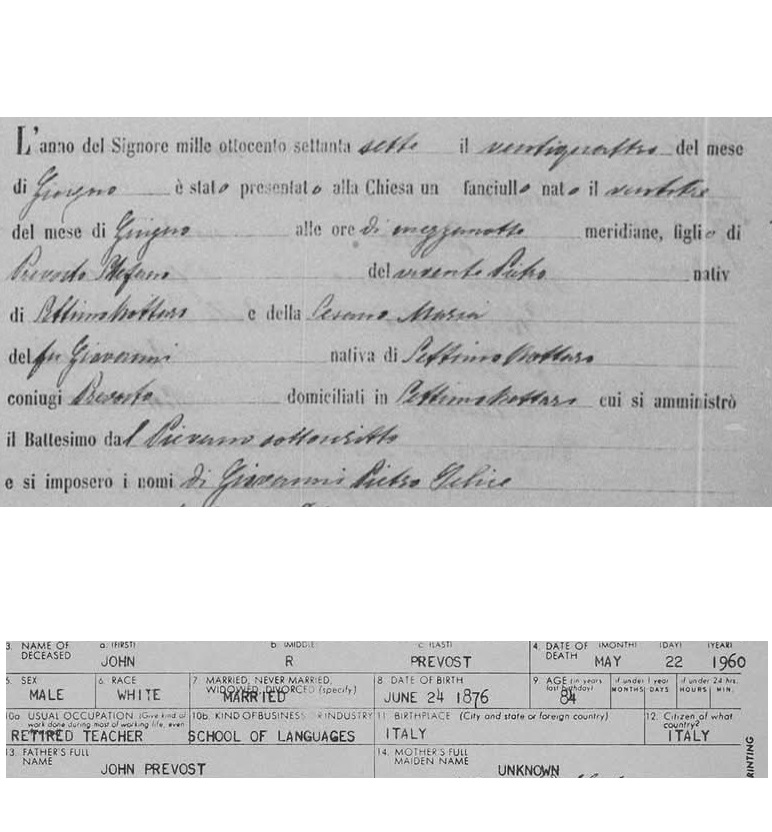 L'anno del Signore mille ottocento settanta sette il ventiquattro del mese
di Giugno è stato presentato alla Chiesa un fanciullo nato il ventitre
del mese di Giugno alle ore di mezzanotte meridiane, figlio di
Prevosto Stefano del vivente Pietro nativ
di Settimo Rottaro e della Cesano Maria
del fu Giovanni nativa di Settimo Rottaro
coniugi Prevosto domiciliati in Settimo Rottaro cui si amministrò
il Battesimo dal Pievano sottoscritto
e si imposero i nomi di Giovanni Pietro Felice
3. NAME OF DECEASED a. (FIRST) b. (MIDDLE) c. (LAST) 4. DATE OF DEATH (MONTH) (DAY) (YEAR)
JOHN R PREVOST MAY 22 1960
5. SEX 6. RACE 7. MARRIED, NEVER MARRIED, WIDOWED, DIVORCED (specify) 8. DATE OF BIRTH 9. AGE (in years last birthday) if under 1 year MONTHS DAYS if under 24 hrs. HOURS MIN.
MALE WHITE MARRIED JUNE 24 1876 84
10a. USUAL OCCUPATION (Give kind of work done during most of working life, even 10b. KIND OF BUSINESS OR INDUSTRY 11. BIRTHPLACE (City and state or foreign country) 12. Citizen of what country?
RETIRED TEACHER SCHOOL OF LANGUAGES ITALY ITALY
13. FATHER'S FULL NAME 14. MOTHER'S FULL MAIDEN NAME
JOHN PREVOST UNKNOWN
RINTING